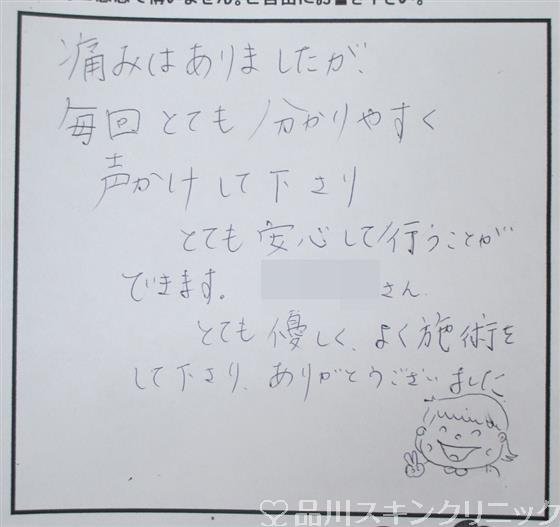 痛みはありましたが、
毎回とても分かりやすく
声かけして下さり
とても安心して行うことが
できます。 さん
とても優しく、よく施術を
して下さり、ありがとうございました
品川スキンクリニック